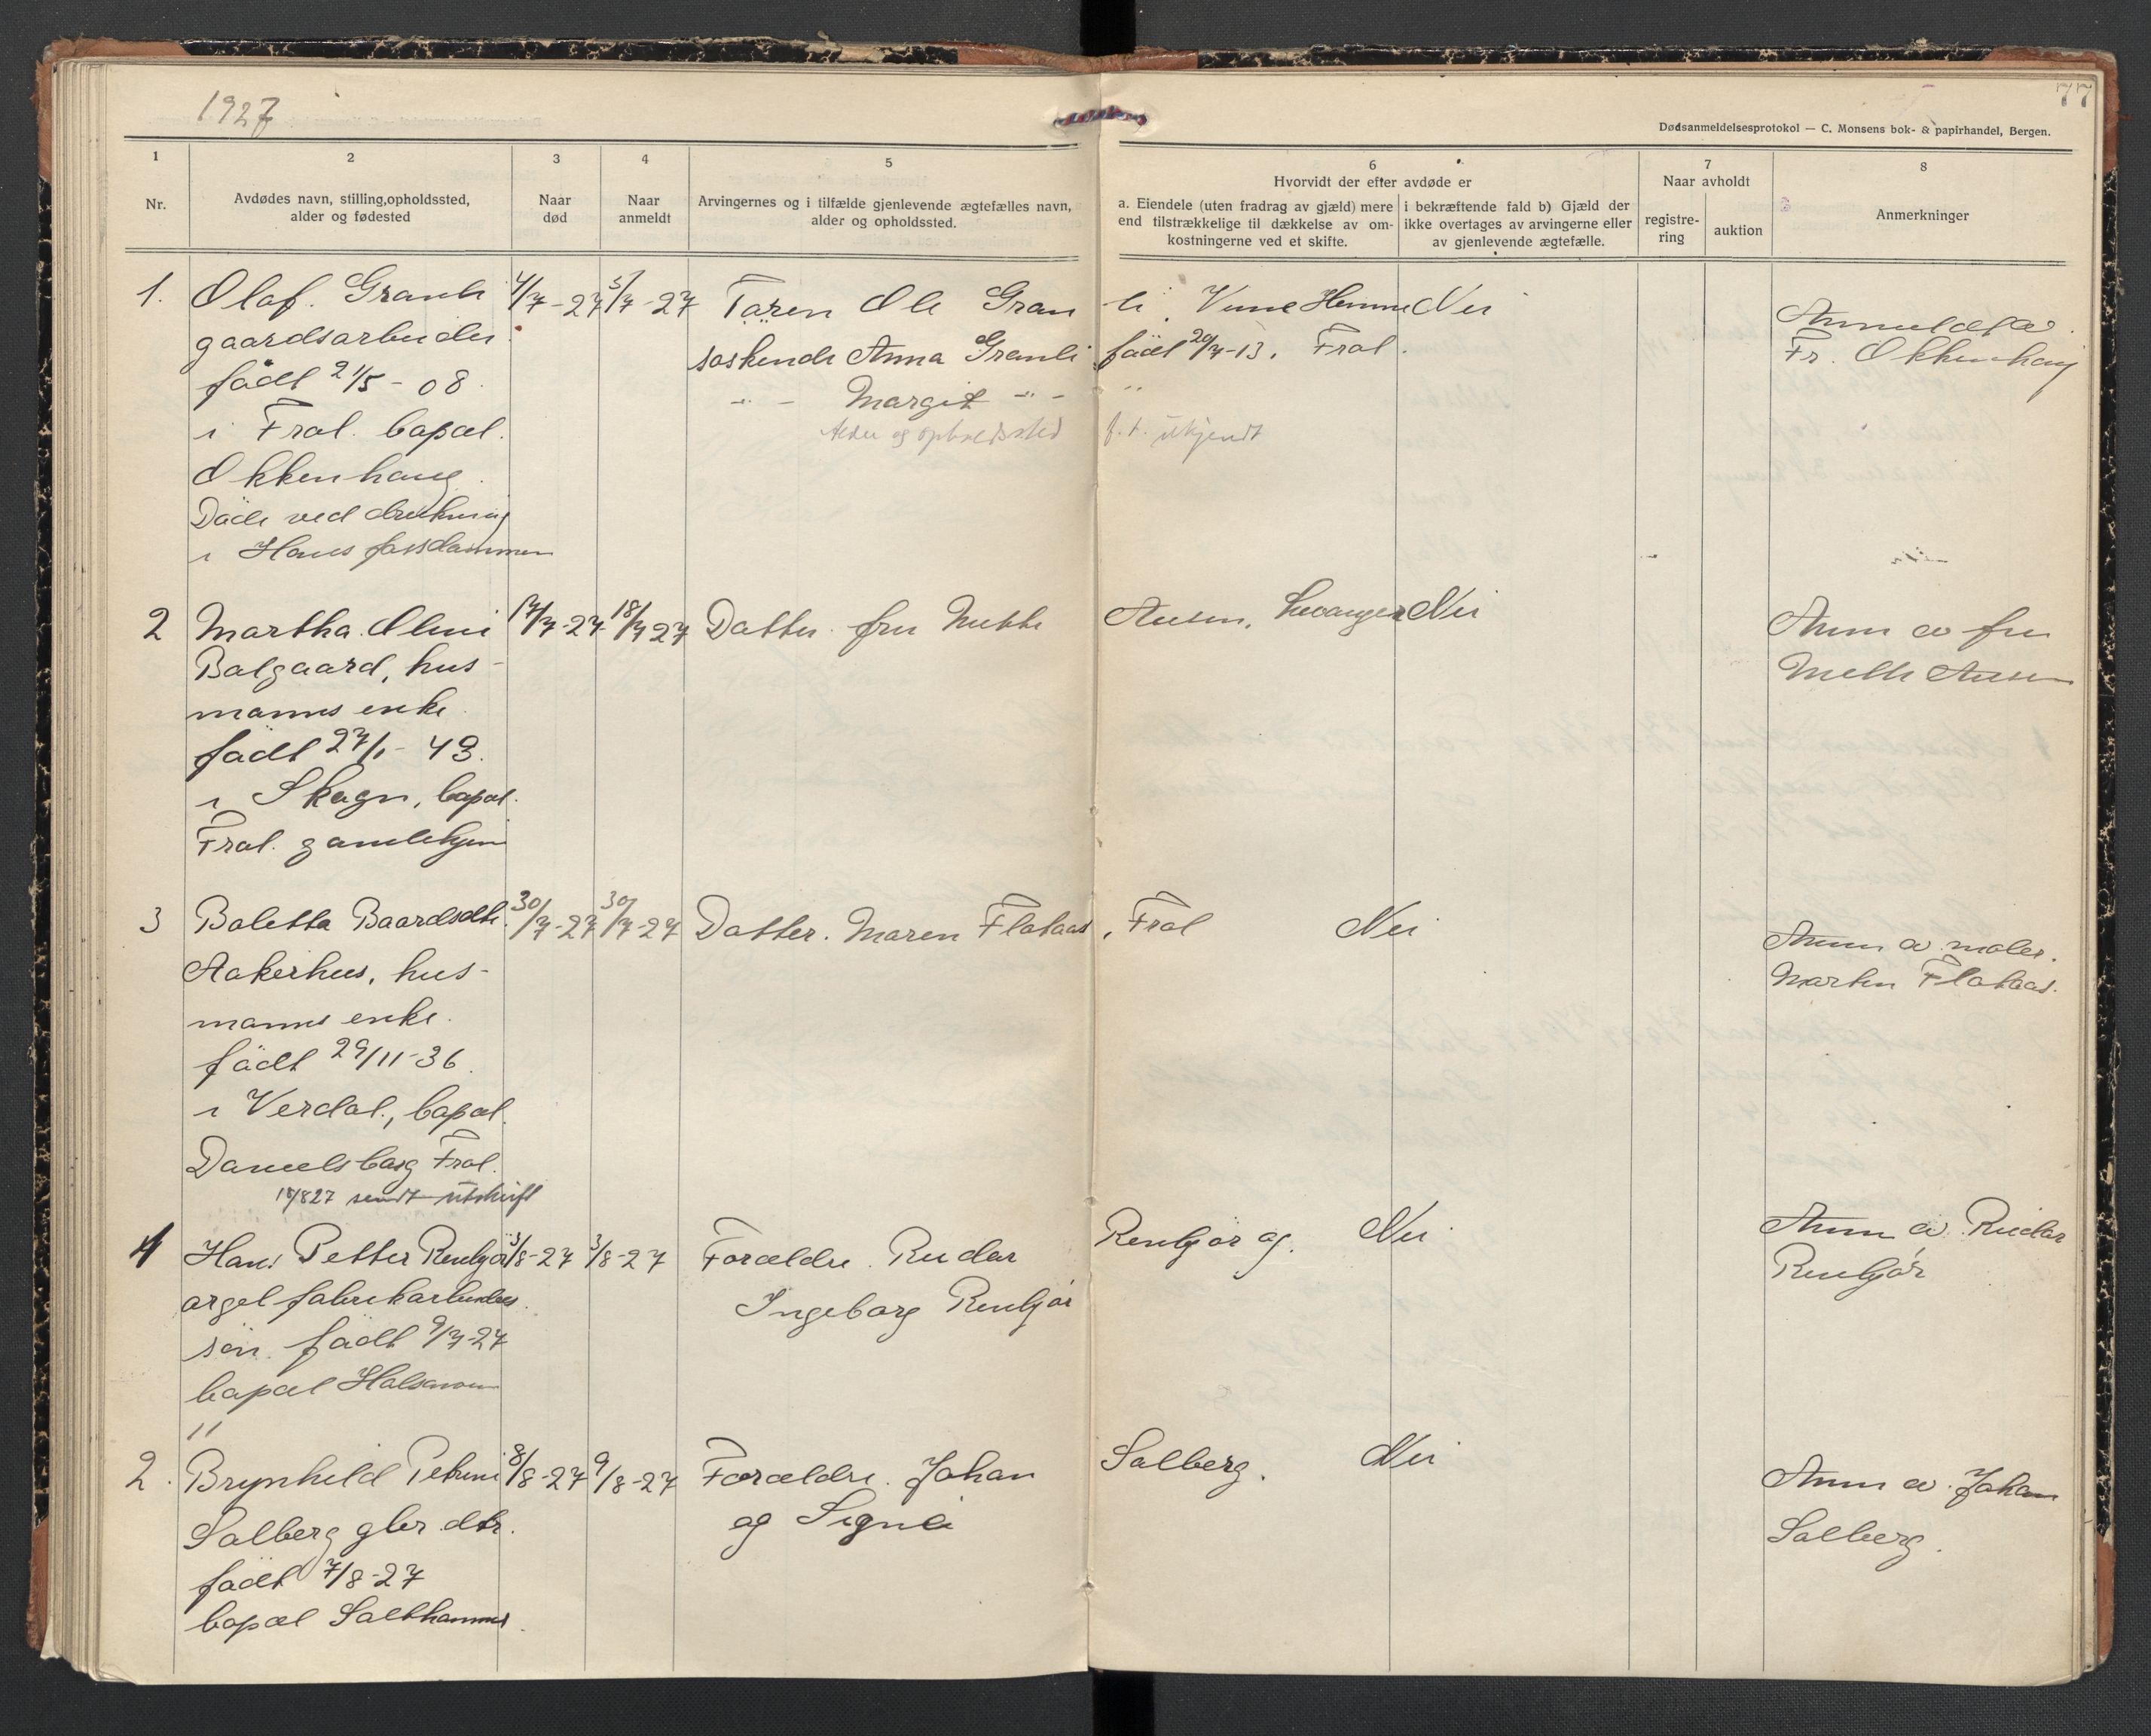 1927
77
Dødsanmeldelsesprotokol — C. Monsens bok- & papirhandel, Bergen.
1 2 3 4 5 6 7 8
Nr.
Avdødes navn, stilling, opholdssted,
alder og fødested
Naar
død
Naar
anmeldt
Arvingernes og i tilfælde gjenlevende ægtefælles navn,
alder og opholdssted.
Hvorvidt der efter avdøde er
a. Eiendele (uten fradrag av gjæld) mere
end tilstrækkelige til dækkelse av om-
kostningerne ved et skifte.
i bekræftende fald b) Gjæld der
ikke overtages av arvingerne eller
av gjenlevende ægtefælle.
Naar avholdt
registre-
ring
auktion
Anmerkninger
1. Olaf. Granli 4/7-27 5/7-27 Faren Ole Granli, Nei
gaardsarbeider
født 21/5-08.
i Frol. bopæl.
Okkenhaug.
Døde ved drukning
i
søskende Anna Granli født 20/7-13. Frol.
" - Margit " - "
Alder og opholdssted f. t. ukjendt
Anmeldt av
Fr. Okkenhaug
2 Martha Olini 17/7-27 18/7 27 Datter fru Mette Aasen, Levanger Nei
Balgaard, hus-
manns enke
født 27/1-43.
i Skogn, bopæl.
Frol. gamlehjem
Anm av fru
Mette Aasen
3 Boletta Baardsdtr. 30/7-27 30/7-27 Datter. Maren Flataas, Frol Nei
Aakerhus, hus-
manns enke.
født 29/11-36.
i Verdal., bopæl.
Danielsborg Frol.
18/8 27 sendt utskrift
Anm av maler.
Martin Flataas.
4 Hans Petter Renbjør 3/8-27 3/8-27 Forældre. Reidar Renbjør og. Nei
orgelfabrikarbeiders.
søn. født 9/7-27
bopæl
"
Ingeborg Renbjør
Anm av Reidar
Renbjør
2. Brynhild Petrine 8/8-27 9/8-27 Forældre. Johan Salberg. Nei
Salberg gbr. dtr.
født 7/8-27
bopæl Salthammer.
og Signe
Anm av. Johan
Salberg.